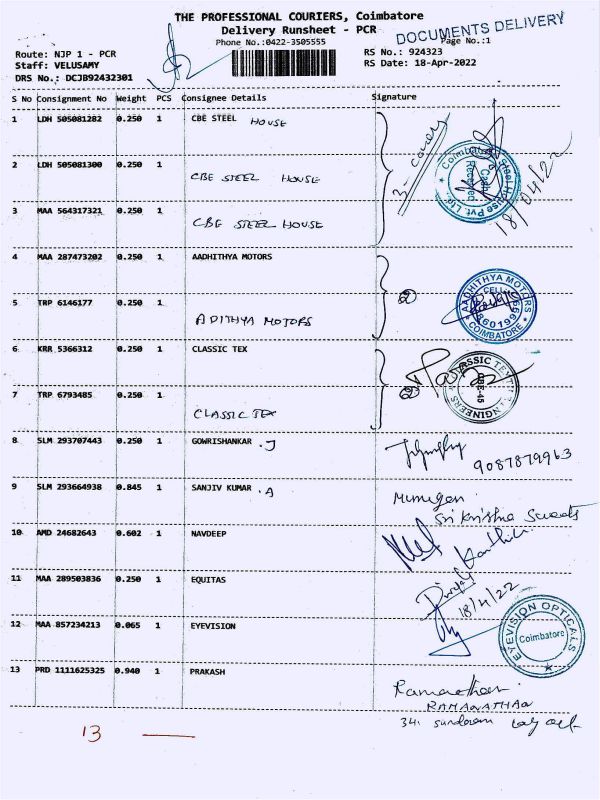 THE PROFESSIONAL COURIERS, Coimbatore
Delivery Runsheet - PCR
DOCUMENTS DELIVERY
Phone No.:0422-3505555
Page No.:1
Route: NJP 1 - PCR
RS No.: 924323
Staff: VELUSAMY
RS Date: 18-Apr-2022
DRS No.: DCJB92432301
S No Consignment No Weight PCS Consignee Details Signature
1 LDH 505081282 0.250 1 CBE STEEL HOUSE
2 LDH 505081300 0.250 1 CBE STEEL HOUSE
3 MAA 564317321 0.250 1 CBE STEEL HOUSE
Coimbatore Steel House Pvt. Ltd.
Received
18/04/22
4 MAA 287473202 0.250 1 AADHITHYA MOTORS
5 TRP 6146177 0.250 1 ADITHYA MOTORS
2
AADHITHYA MOTORS
CELL
COIMBATORE
6 KRR 5366312 0.250 1 CLASSIC TEX
7 TRP 6793485 0.250 1 CLASSIC TEX
2
CBE-45
8 SLM 293707443 0.250 1 GOWRISHANKAR .J
9087879963
9 SLM 293664938 0.845 1 SANJIV KUMAR .A
Murugan
Sri Krishna Sweets
10 AMD 24682643 0.602 1 NAVDEEP
11 MAA 289503836 0.250 1 EQUITAS
18/4/22
12 MAA 857234213 0.065 1 EYEVISION
EYEVISION OPTICALS
Coimbatore
13 PRD 1111625325 0.940 1 PRAKASH
RAMANATHAN
341 Sundaram Layout
13